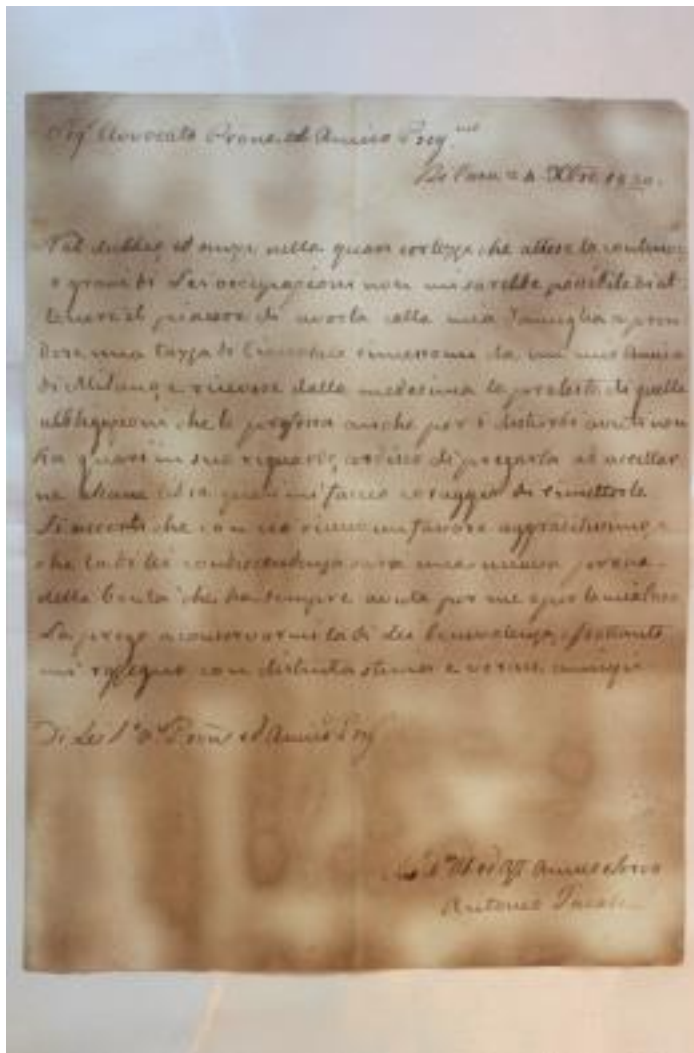 Sig.r Avvocato Prone. ed Amico Preg.mo
Di Casa 4 Xbre 1830.
Nel dubbio, ed anzi nella quasi certezza che attese le continue
e gravi di Lei occupazioni non mi sarebbe possibile di ot
tenere il piacere di averla colla mia Famiglia a pren
dere una Tazza di Cioccolata rimessomi da un mio Amico
di Milano, e ricevere dalla medesima le proteste di quelle
obbligazioni che le professa anche per i disturbi avuti non
ha guari in suo riguardo, ardisco di pregarla ad accettar
ne che mi faccio coraggio di rimetterle
che con ciò un favore aggraditissimo, e
che la di lei condiscendenza sarà una nuova prova
della bontà che ha sempre avuta per me e per la mia
La prego a conservarmi la di Lei benevolenza, e frattanto
mi rassegno con distinta stima e verace amicizia
Di Lei Sig.r Prone ed Amico Preg
Amico e Servo
Antonio